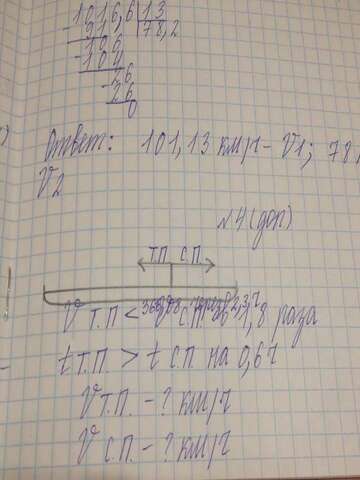 1016,6 | 13
- 91 | 78,2
106
- 104
26
- 26
0
Ответ: 101,13 км/ч - V1; 78,
V2
№4 (доп)
Т.П С.П.
V Т.П < V С.П. 1,8 раза
t Т.П. > t С.П. на 0,6 ч
V Т.П. - ? км/ч
V С.П. - ? км/ч